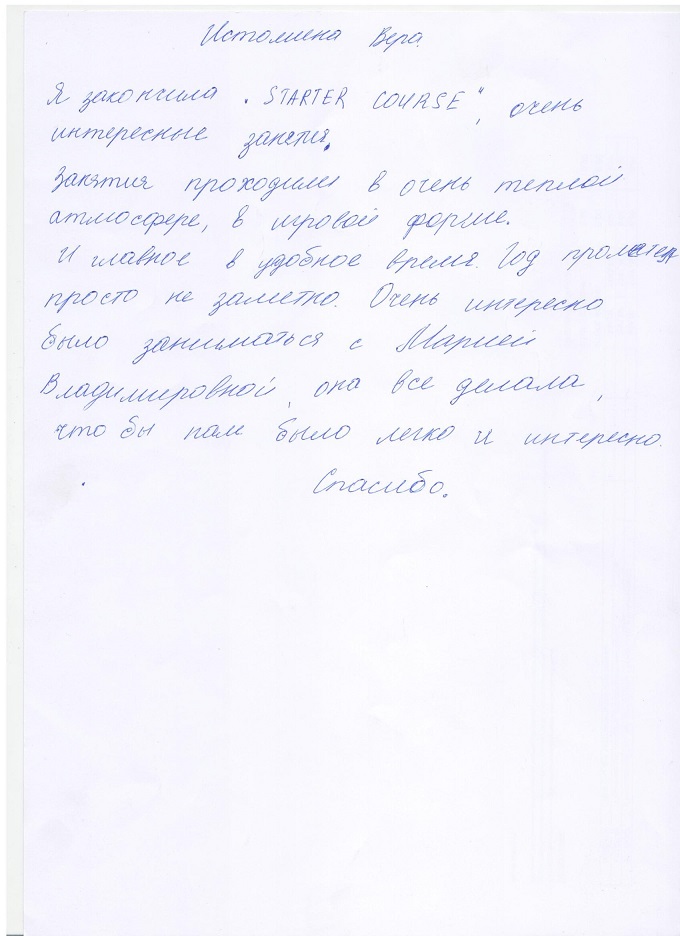 Истомина Вера.
Я закончила "STARTER COURSE", очень
интересные занятия.
Занятия проходили в очень теплой
атмосфере, в игровой форме.
И главное в удобное время. Год пролетел
просто не заметно. Очень интересно
было заниматься с Марией
Владимировной, она все делала,
что бы нам было легко и интересно.
Спасибо.